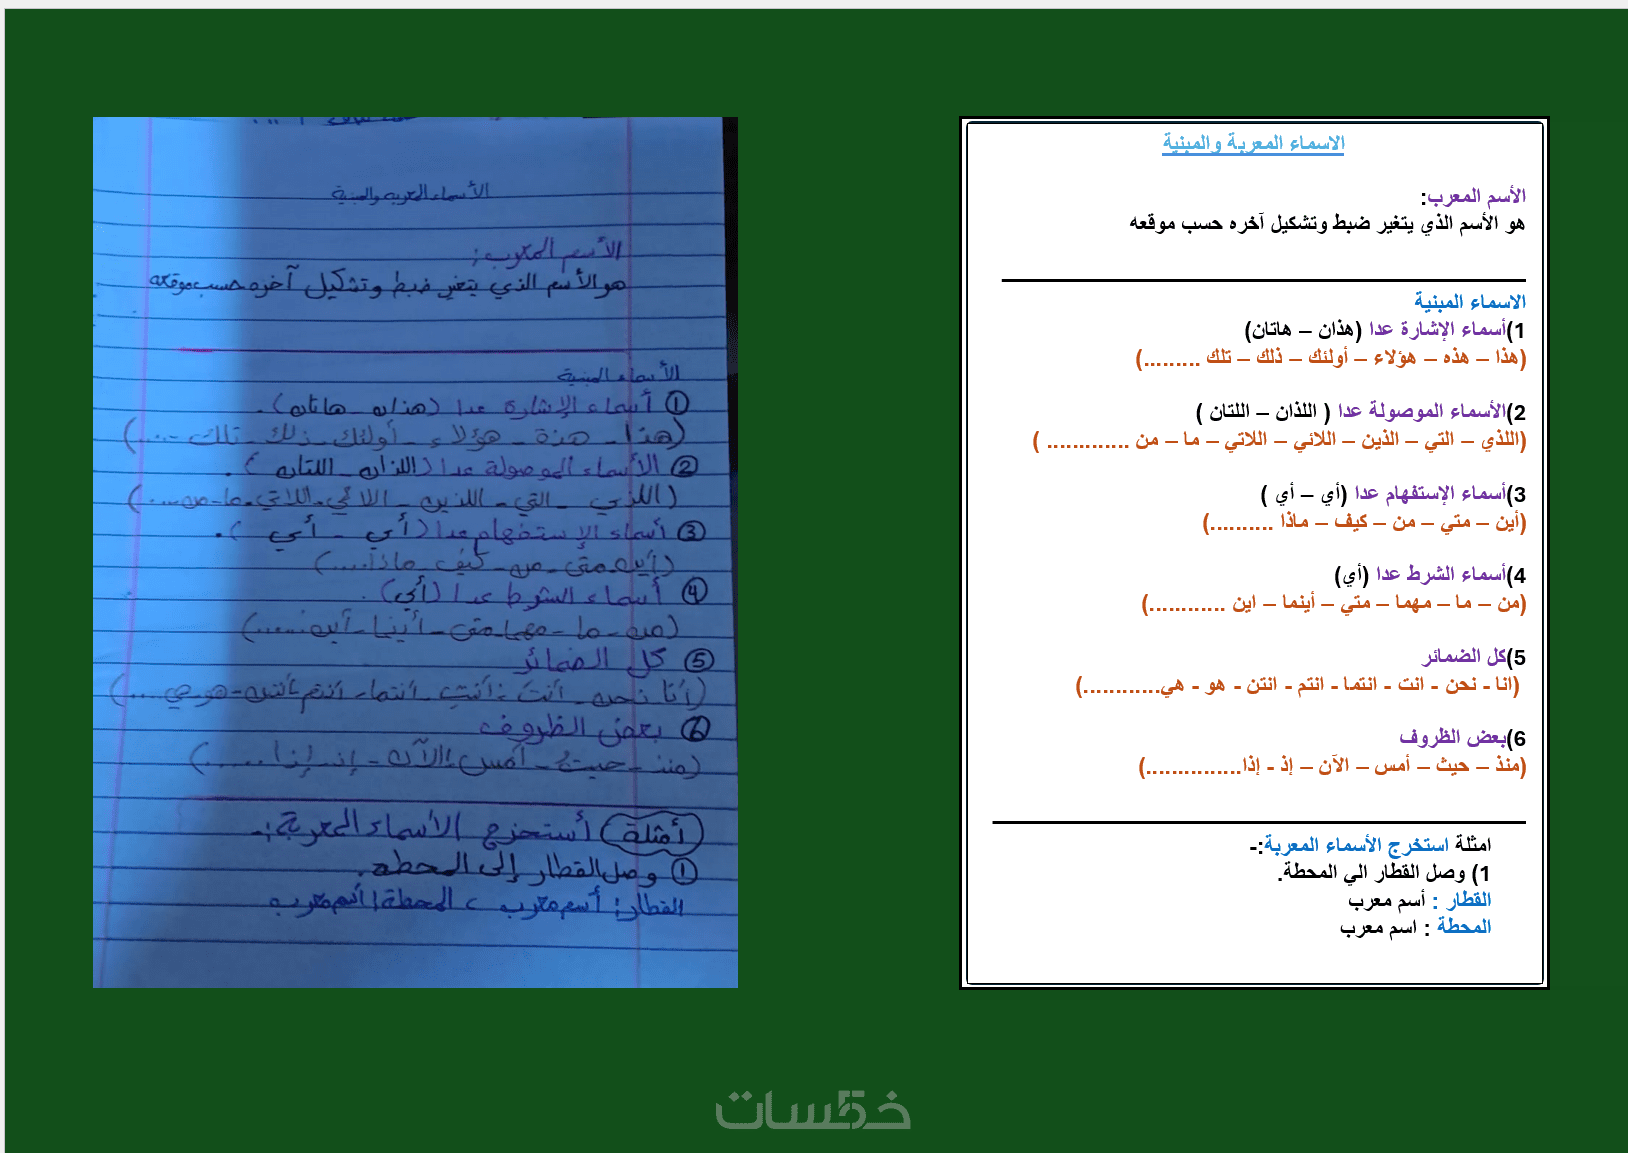 الاسماء المعربة والمبنية
الأسم المعرب:
هو الأسم الذي يتغير ضبط وتشكيل آخره حسب موقعه
الاسماء المبنية
1)أسماء الإشارة عدا (هذان – هاتان)
(هذا – هذه – هؤلاء – أولئك – ذلك – تلك .........)
2)الأسماء الموصولة عدا ( اللذان – اللتان )
(اللذي – التي – الذين – اللائي – اللاتي – ما – من ............ )
3)أسماء الإستفهام عدا (أي – أي )
(أين – متي – من – كيف – ماذا ..........)
4)أسماء الشرط عدا (أي)
(من – ما – مهما – متي – أينما – اين ............)
5)كل الضمائر
(انا - نحن - انت - انتما - انتم - انتن - هو - هي............)
6)بعض الظروف
(منذ – حيث – أمس – الآن – إذ - إذا...............)
امثلة استخرج الأسماء المعربة:-
1) وصل القطار الي المحطة.
القطار : أسم معرب
المحطة : اسم معرب
الأسماء المعربه والمبنية
الأسم المعرب:
هو الأسم الذي يتغير ضبط وتشكيل آخره حسب موقعه
الأسماء المبنية
1 أسماء الإشارة عدا (هذان - هاتان).
(هذا - هذة - هؤلاء - أولئك - ذلك - تلك -....)
2 الأسماء الموصولة عدا (اللذان - اللتان ).
(اللذي - التي - اللذين - اللائي - اللاتي - ما - من....)
3 أسماء الإستفهام عدا (أي - أي ).
(أين - متى - من - كيف - ماذا....)
4 أسماء الشرط عدا (أي).
(من - ما - مهما - متى - أينما - أين.....)
5 كل الضمائر
(أنا - نحن - أنت - أنتِ - أنتما - أنتم - أنتن - هو - هي....)
6 بعض الظروف
(منذ - حيثُ - أمس - الآن - إذ - إذا......)
أمثلة أستخرج الأسماء المعربة:-
1 وصل القطار إلى المحطه.
القطار: أسم معرب ، المحطة: أسم معرب
خمسات